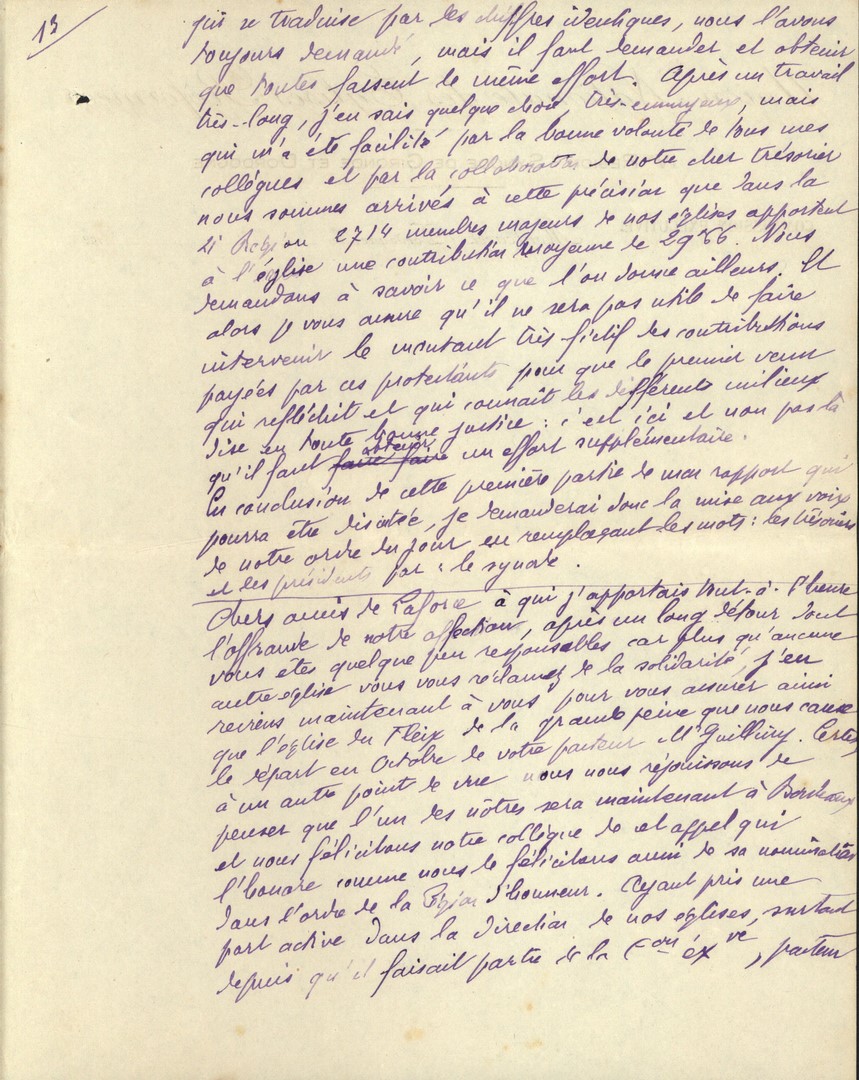 13
qui se traduise par des chiffres identiques, nous l'avons
toujours demandé, mais il faut demander et obtenir
que toutes fassent le même effort. Après un travail
très-long, j'en sais quelque chose, très-ennuyeux, mais
qui m'a été facilité par la bonne volonté de tous mes
collègues et par la collaboration de notre cher trésorier
nous sommes arrivés à cette précision que dans la
4e Région 2714 membres majeurs de nos églises apportent
à l'église une contribution moyenne de 29f66. Nous
demandons à savoir ce que l'on donne ailleurs. Et
alors je vous assure qu'il ne sera pas utile de faire
intervenir le montant très-fictif des contributions
payées par ces protestants pour que le premier venu
qui réfléchit et qui connait les différents milieux
dise en toute bonne justice : c'est ici et non pas là
qu'il faut faire faire obtenir un effort supplémentaire.
En conclusion de cette première partie de mon rapport qui
pourra être discutée, je demanderai donc la mise aux voix
de notre ordre du jour en remplaçant les mots : les trésoriers
et les présidents par : le synode.
Chers amis de Laforce à qui j'apportais tout-à-l'heure
l'offrande de notre affection, après un long détour dont
vous etes quelque peu responsables car plus qu'aucune
autre église vous vous réclamez de la solidarité, j'en
reviens maintenant à vous pour vous assurer ainsi
que l'église du Fleix de la grande peine que nous cause
le départ en Octobre de votre pasteur Mr Guilhiny. Certes
à un autre point de vue nous nous réjouissons de
penser que l'un des nôtres sera maintenant à Bordeaux
et nous félicitons notre collègue de cet appel qui
l'honore comme nous le félicitons aussi de sa nomination
dans l'ordre de la Légion d'honneur. Ayant pris une
part active dans la direction de nos églises, surtout
depuis qu'il faisait partie de la Con éxve, pasteur